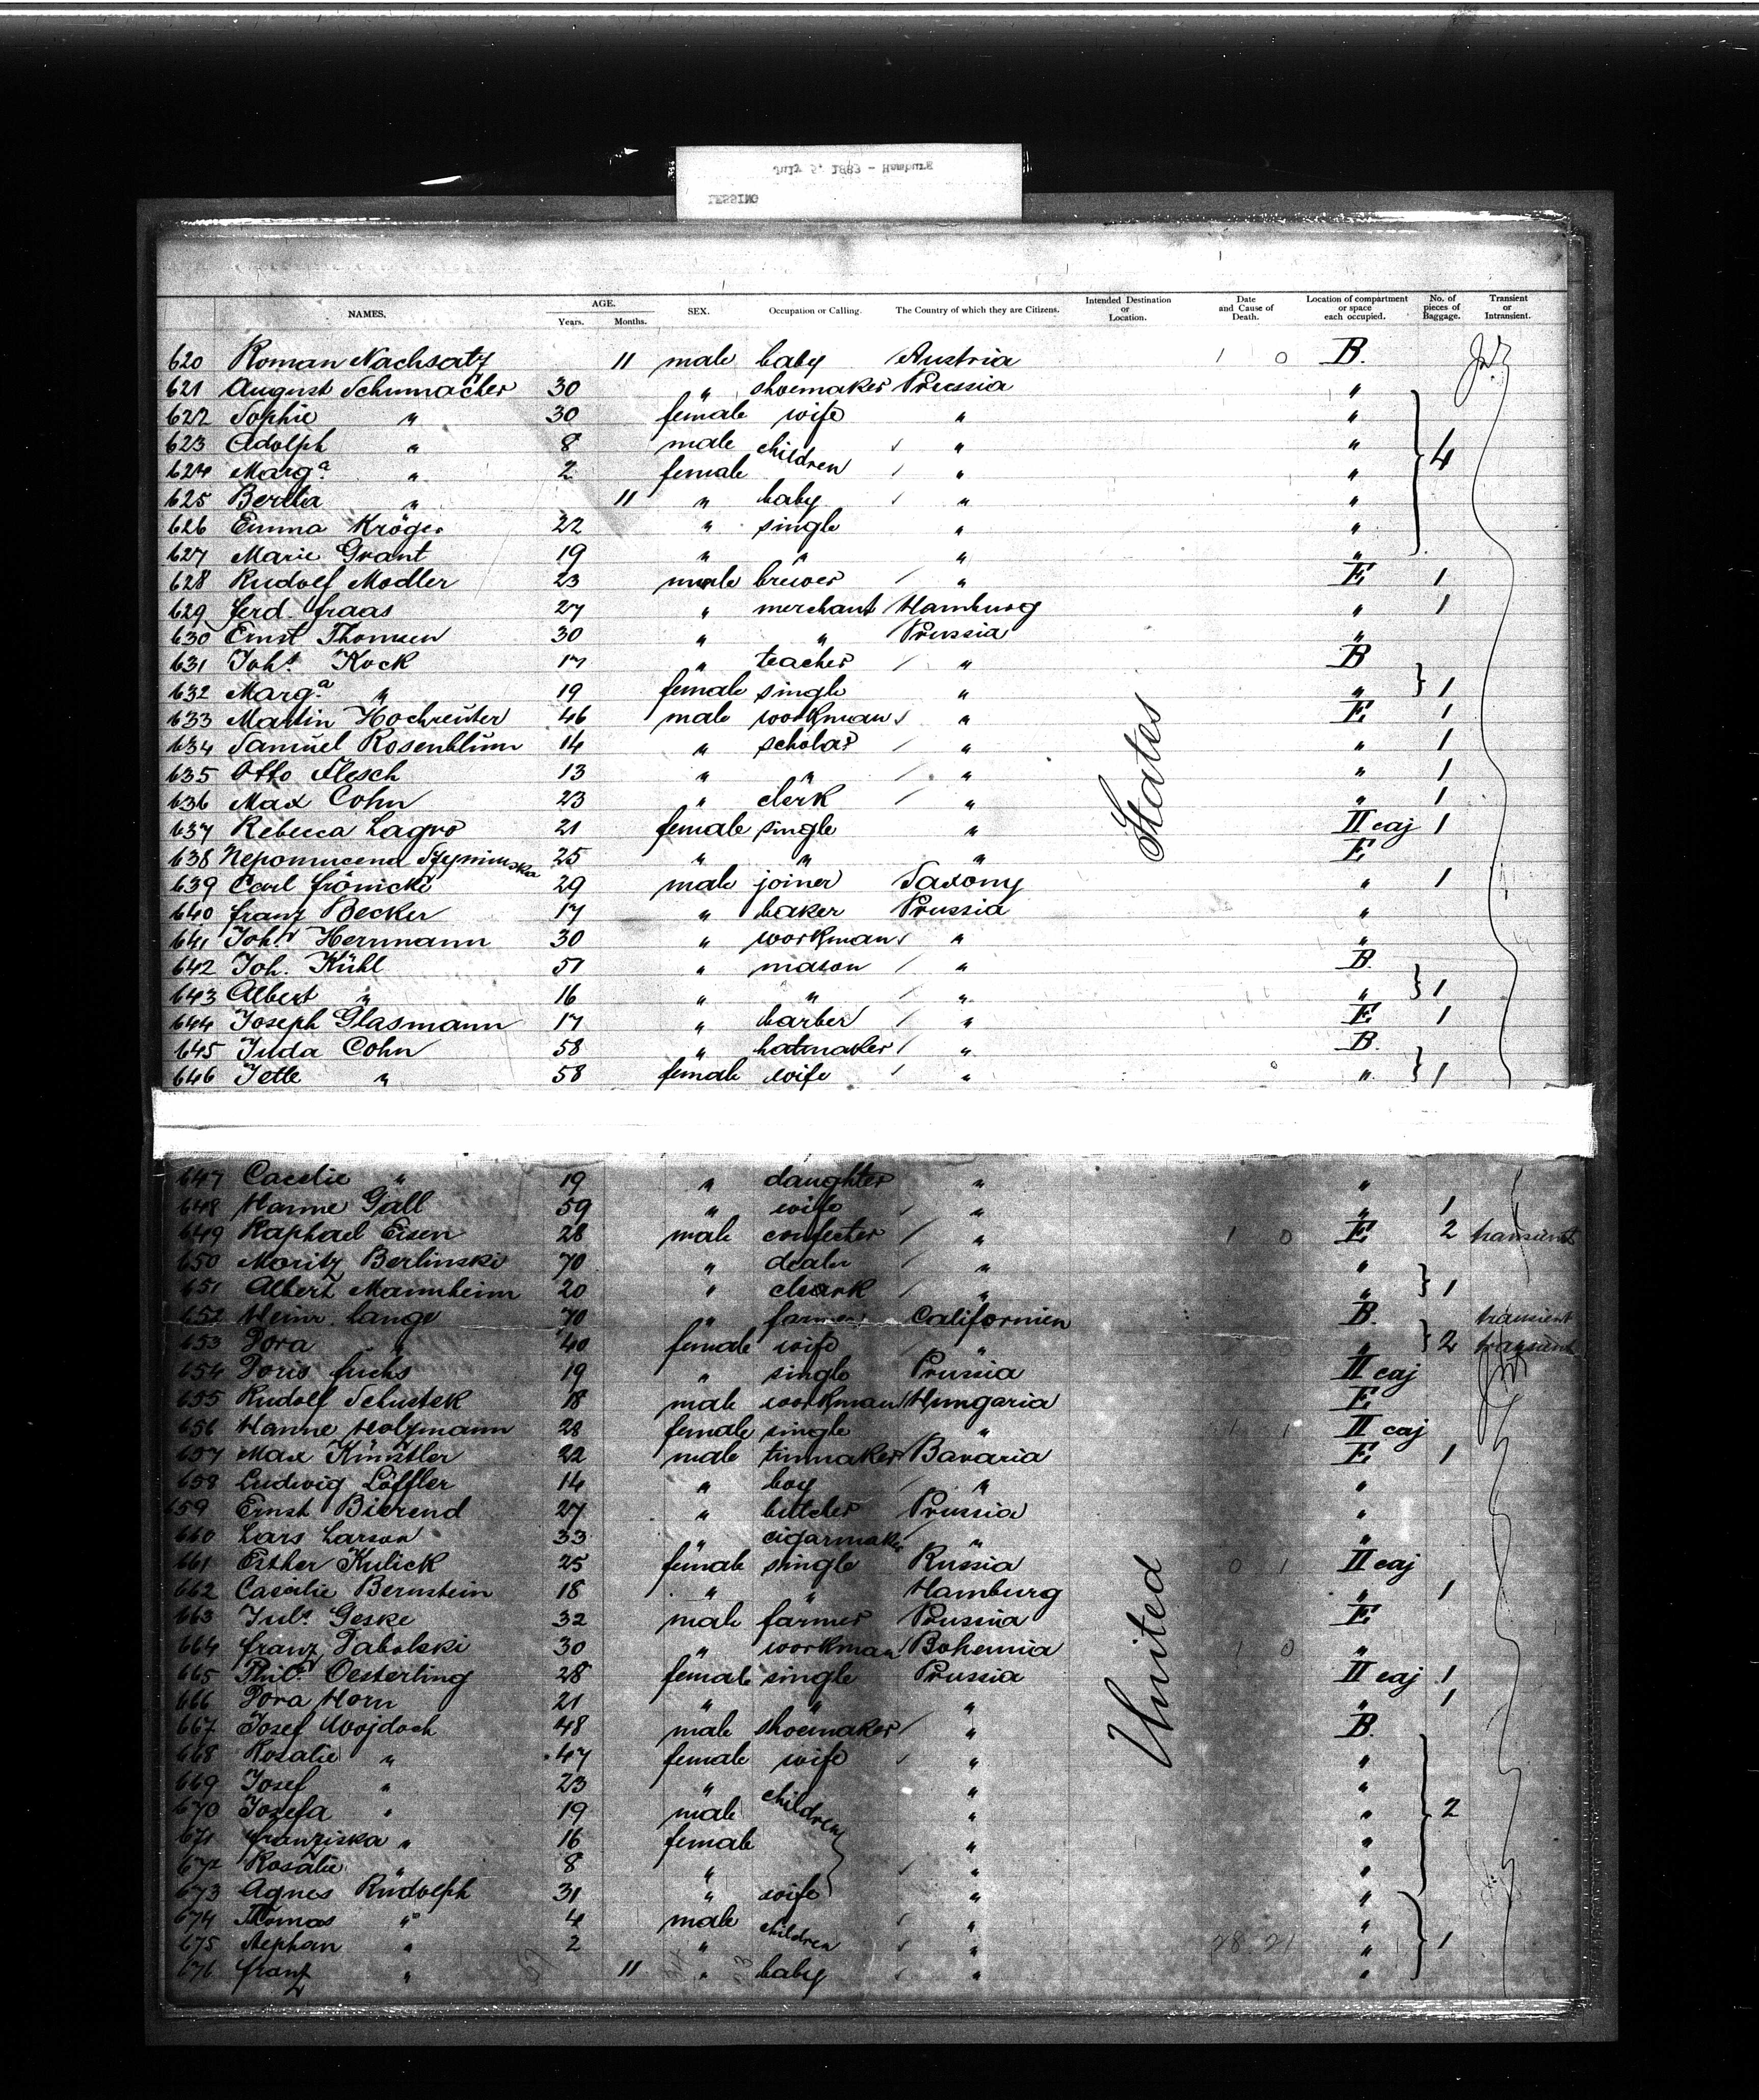 July 5, 1883 - Hamburg
LESSING
NAMES. AGE. Years. Months. SEX. Occupation or Calling. The Country of which they are Citizens. Intended Destination or Location. Date and Cause of Death. Location of compartment or space each occupied. No. of pieces of Baggage. Transient or Intransient.
620 Roman Nachsatz 11 male baby Austria 1 0 B.
621 August Schumacher 30 " shoemaker Prussia "
622 Sophie " 30 female wife " "
623 Adolph " 8 male children " "
624 Marg.a " 2 female " " 4
625 Bertha " 11 " baby " "
626 Emma Kröger 22 " single " "
627 Marie Grant 19 " " " "
628 Rudolf Modler 23 male brewer " E 1
629 Ferd. Fraas 27 " merchant Hamburg " 1
630 Ernst Thomsen 30 " " Prussia "
631 Johs. Kock 17 " teacher " B
632 Marg.a " 19 female single " " 1
633 Martin Hochreuter 46 male workman " E 1
634 Samuel Rosenblum 14 " scholar " " 1
635 Otto Flesch 13 " " " " 1
636 Max Cohn 23 " clerk " " 1
637 Rebecca Lagro 21 female single " II caj 1
638 Nepomucena Szyminska 25 " " " E
639 Carl Frönicke 29 male joiner Saxony " 1
640 Franz Becker 17 " baker Prussia "
641 Joh. Herrmann 30 " workman " "
642 Joh. Kühl 51 " mason " B.
643 Albert " 16 " " " " 1
644 Joseph Glasmann 17 " barber " E 1
645 Juda Cohn 58 " hatmaker " B.
646 Jette " 58 female wife " " 1
647 Caecilie " 19 " daughter " "
648 Hanne Gall 59 " wife " " 1
649 Raphael Eisen 28 male confecter " 1 0 E 2 transient
650 Moritz Berlinski 70 " dealer " "
651 Albert Mannheim 20 " cleark " " 1
652 Heinr. Lange 70 " farmer Californien B. transient
653 Dora " 40 female wife " " 2 transient
654 Doris Fuchs 19 " single Prussia II caj
655 Rudolf Schustek 18 male workman Hungaria E
656 Hanne Holzmann 28 female single " 1 1 II caj
657 Max Künstler 22 male tinmaker Bavaria E 1
658 Ludwig Löffler 14 " boy " "
659 Ernst Bierend 27 " butcher Prussia "
660 Lars Larson 33 " cigarmaker " "
661 Esther Kulick 25 female single Russia 0 1 II caj
662 Caecilie Bernstein 18 " " Hamburg " 1
663 Juls. Geske 32 male farmer Prussia E
664 Franz Dabolski 30 " workman Bohemia 1 0 "
665 Oesterling 28 female single Prussia II caj 1
666 Dora Horn 21 " " " " 1
667 Josef Wojdoch 48 male shoemaker " B.
668 Rosalie " 47 female wife " "
669 Josef " 23 " children " "
670 Josefa " 19 male " " 2
671 Franziska " 16 female " "
672 Rosalie " 8 " " "
673 Agnes Rudolph 31 " wife " "
674 Thomas " 4 male children " "
675 Stephan " 2 " " 28 21 " 1
676 Franz " 11 " baby " "
United States